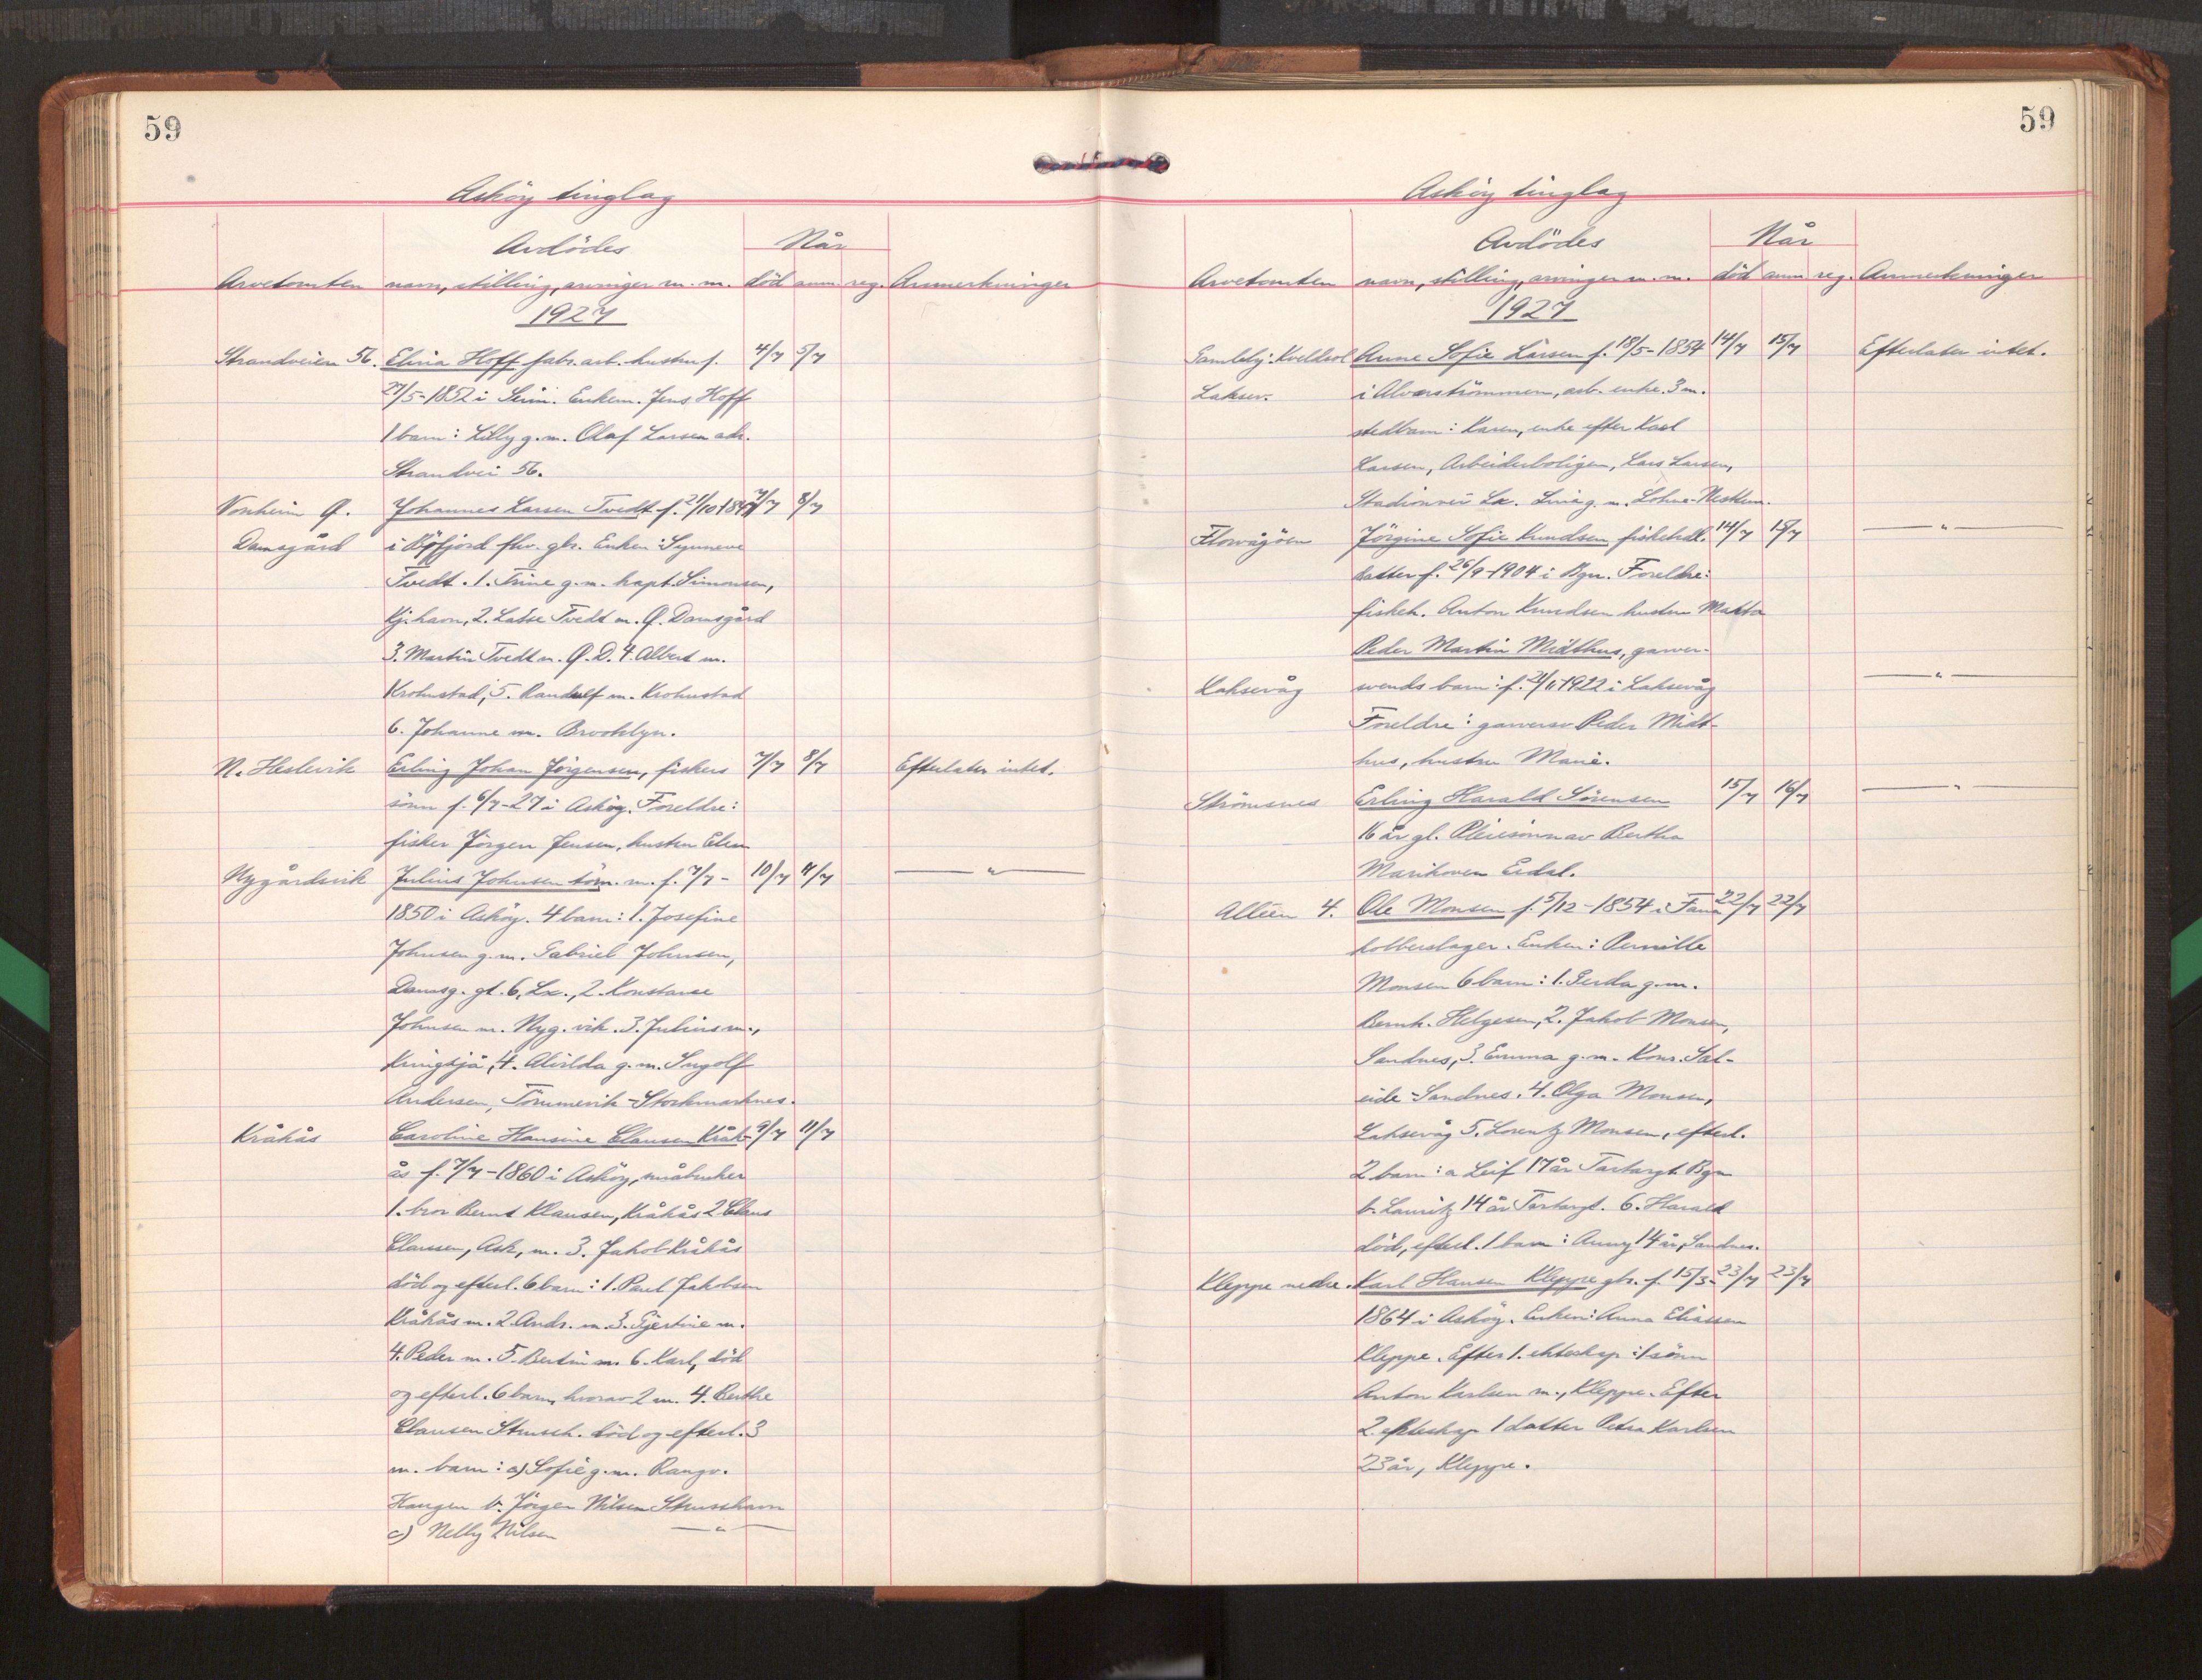 59
Askøy tinglag
Avdödes Når
Arvetomten navn, stilling, arvinger m. m. död anm. reg. Anmerkninger
1927
Strandveien 56. Elina Hoff fabr. arb. hustru f. 4/7 5/7
27/5-1852 i Seim. Enkem. Jens Hoff
1 barn: Lilly g. m. Olaf Larsen adr.
Strandvei 56.
Vonheim Q. Johannes Larsen Tvedt f. 21/10 184 7/7 8/7
Damsgård i fhv. gbr. Enken: Synneve
Tvedt. 1. Trine g. m. kapt. Simonsen,
Kj.havn, 2. Lasse Tvedt m. Q. Damsgård
3. Martin Tvedt m. Q. D. 4. Albert m.
Krohnstad, 5. Randulf m. Krohnstad
6. Johanne m. Brooklyn.
N. Heslevik Erling Johan Jörgensen, fiskers 7/7 8/7 Efterlater intet.
sönn f. 6/7-27 i Asköy. Foreldre:
fisker Jörgen Jensen, hustru Elen
Nygårdsvik Julius Johnsen töm. m. f. 7/7- 10/7 11/7 — " —
1850 i Asköy. 4 barn: 1. Josefine
Johnsen g. m. Gabriel Johnsen,
Damsg. gt. 6, Lx., 2. Konstanse
Johnsen m. Nyg. vik. 3. Julius m.,
4. Alvilda g. m. Ingolf
Andersen, Tömmervik - Stockmarknes.
Kråkås Caroline Hansine Clausen Kråk- 9/7 11/7
ås f. 7/7-1860 i Asköy,
1. bror Bernt Klausen, Kråkås 2 Claus
Clausen, Ask, m. 3. Jakob Kråkås
död og efterl. 6 barn: 1. Paul Jakobsen
Kråkås m. 2. Andr. m. 3. Gjertine m.
4. Peder m. 5. Bertin m. 6. Karl, död
og efterl. 6 barn, hvorav 2 m. 4. Berthe
Clausen Strussh. död og efterl. 3
m. barn: a) Sofie g. m. Rangv.
Haugen b. Jörgen Nilsen Strusshavn
c) Nelly Nilsen — " —
59
Asköy tinglag
Avdödes Når
Arvetomten navn, stilling, arvinger m. m. död anm. reg. Anmerkninger
1927
Gamleby: Kveldsol Anne Sofie Larsen f. 18/5-1854 14/7 15/7 Efterlater intet.
Laksev. i Alverströmmen, arb. enke. 3 m.
stedbarn: Karen, enke efter Karl
Larsen, Arbeiderboligen, Lars Larsen,
Stadionvei Lx. Lina g. m.
Florvågöen Jörgine Sofie Knudsen fiskehdl. 14/7 15/7 — " —
datter f. 26/9-1904 i Bgn. Foreldre:
fiskeh. Anton Knudsen hustru Marta
Peder Martin Midthus, garver-
Laksevåg svends barn: f. 21/6 1922 i Laksevåg — " —
Foreldre: garversv Peder Midt-
hus, hustru Marie.
Strömsnes Erling Harald Sörensen 15/7 16/7 — " —
16 år gl. Pleiesönn av Bertha
Marihoven Eidal.
Alléen 4. Ole Monsen f. 5/12-1854 i Fana 22/7 22/7
kobberslager. Enken: Pernille
Monsen 6 barn: 1. Gerda g. m.
Bernh. Helgesen, 2. Jakob Monsen,
Sandnes, 3. Emma g. m. Konr. Sal-
eide - Sandnes. 4. Olga Monsen,
Laksevåg 5. Lorentz Monsen, efterl.
2 barn: a Leif 17 år Tartargt. Bgn
b. Lauritz 14 år Tartargt. 6. Harald
död, efterl. 1 barn: Anny 14 år, Sandnes.
Kleppe nedre. Karl Hansen Kleppe gbr. f. 15/3- 23/7 23/7
1864 i Asköy. Enken: Anna Eliassen
Kleppe. Efter 1. ekteskap: 1 sönn
Anton Karlsen m., Kleppe. Efter
2. ekteskap 1 datter Petra Karlsen
23 år, Kleppe.